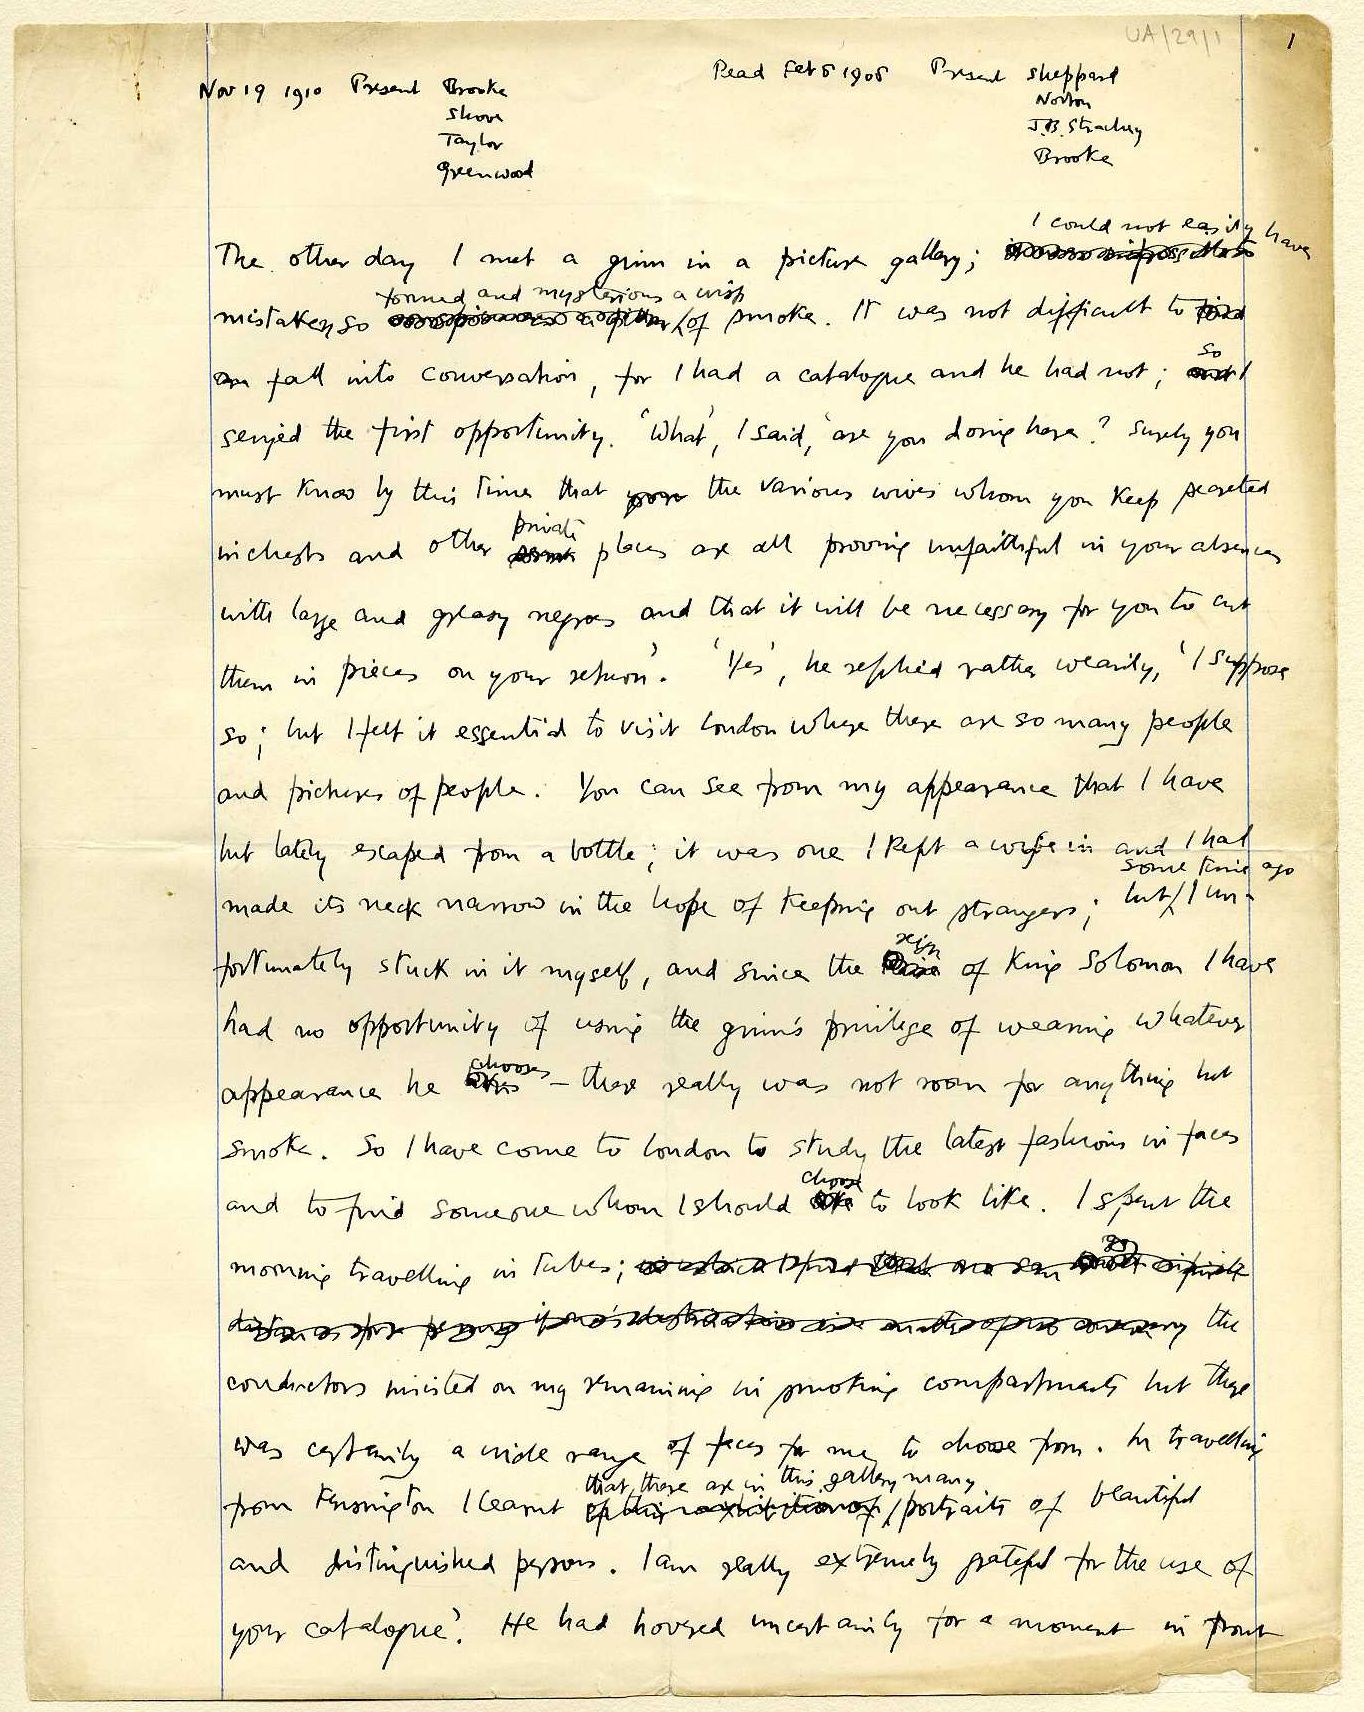 UA/29/1
1
Nov 19 1910 Present Brooke
Shove
Taylor
Greenwood
Read Feb 5 1908 Present Sheppard
Norton
J.B. Strachey
Brooke
I could not easily have
The other day I met a ginn in a picture gallery;
formed and mysterious a wisp
mistaken so of smoke. It was not difficult to find
so
fall into conversation, for I had a catalogue and he had not; and I
seized the first opportunity. 'What', I said, 'are you doing here? Surely you
must know by this time that your the various wives whom you keep secreted
private
in chests and other places are all proving unfaithful in your absences
with large and greasy negroes and that it will be necessary for you to cut
them in pieces on your return'. 'Yes', he replied rather wearily, 'I suppose
so; but I felt it essential to visit London where there are so many people
and pictures of people. You can see from my appearance that I have
but lately escaped from a bottle; it was one I kept a wife in and I had
some time ago
made its neck narrow in the hope of keeping out strangers; but I un-
reign
fortunately stuck in it myself, and since the of King Solomon I have
had no opportunity of using the ginn's privilege of wearing whatever
chooses
appearance he – there really was not room for anything but
smoke. So I have come to London to study the latest fashions in faces
choose
and to find someone whom I should like to look like. I spent the
go
morning travelling in tubes;
the
conductors insisted on my remaining in smoking compartments but there
was certainly a wide range of faces for me to choose from. In travelling
that there are in this gallery many
from Kensington I learnt of this exhibition of portraits of beautiful
and distinguished persons. I am really extremely grateful for the use of
your catalogue'. He had hovered uncertainly for a moment in front